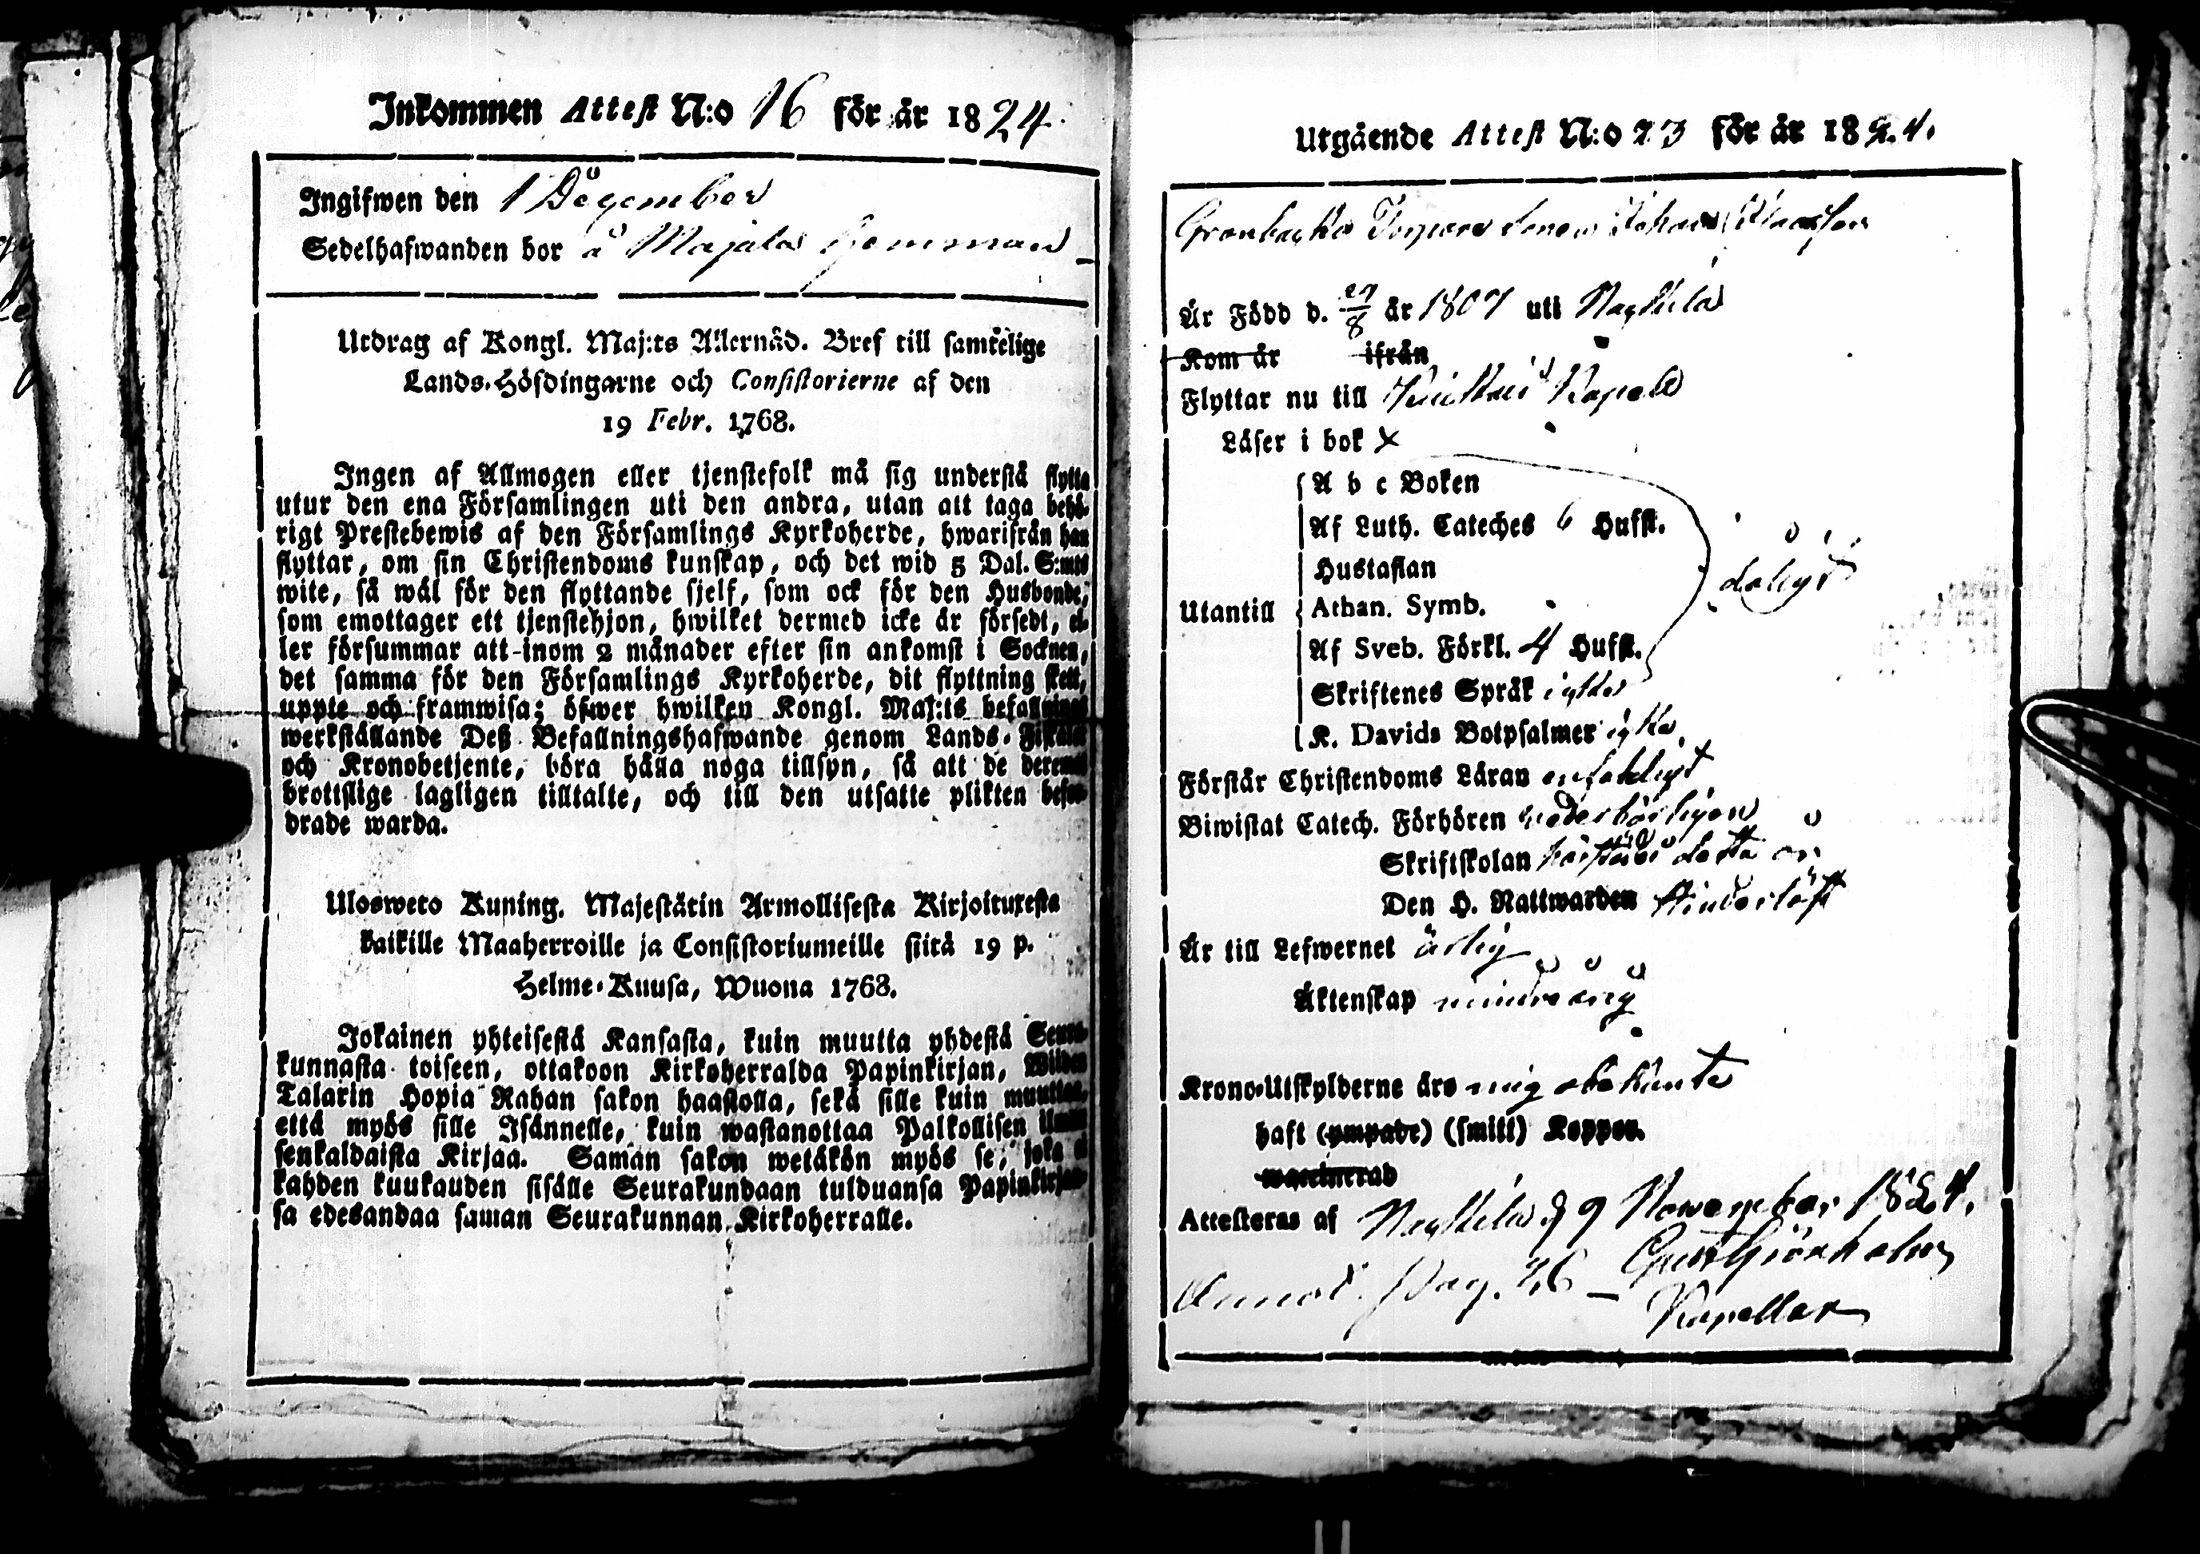 Inkommen Attest N:o 16 för år 1824.
Ingifwen den 1 December
Sedelhafwanden bor å Majala Hemman
Utdrag af Kongl. Maj:ts Allernåd. Bref till samtelige
Lands-Höfdingarne och Consistorierne af den
19 Febr. 1768.
Ingen af Allmogen eller tjenstefolk må sig understå flytta
utur den ena Församlingen uti den andra, utan att taga behö-
rigt Prestebewis af den Församlings Kyrkoherde, hwarifrån han
flyttar, om sin Christendoms kunskap, och det wid 5 Dal. S:mts
wite, så wäl för den flyttande sjelf, som ock för den Husbonde,
som emottager ett tjenstehjon, hwilket dermed icke är försedt, el-
ler försummar att inom 2 månader efter sin ankomst i Socknen,
det samma för den Församlings Kyrkoherde, dit flyttning skett,
uppte och framwisa; öfwer hwilken Kongl. Maj:ts befallnings
werkställande Deß Befallningshafwande genom Lands-Fiskaler
och Kronobetjente, böra hålla noga tillsyn, så att de deremot
brottslige lagligen tilltalte, och till den utsatte plikten befor-
drade warda.
Ulosweto Kuning. Majestätin Armollisesta Kirjoituxesta
kaikille Maaherroille ja Consistoriumeille siitä 19 p.
Helme-Kuusa, Wuona 1768.
Jokainen yhteisestä Kansasta, kuin muutta yhdestä Seura-
kunnasta toiseen, ottakoon Kirkoherralda Papinkirjan, Wiiden
Talarin Hopia Rahan sakon haastolla, sekä sille kuin muuttaa,
että myös sille Isännelle, kuin wastanottaa Palkollisen ilman
senkaldaista Kirjaa. Saman sakon wetäkön myös se, joka ei
kahden kuukauden sisälle Seurakundaan tulduansa Papinkirjan-
sa edesandaa saman Seurakunnan Kirkoherralle.
Utgående Attest N:o 23 för år 1824.
Johan
Är Född d. 27/8 år 1807 uti Nagkila
Kom år ifrån
Flyttar nu till Kapell
Läser i bok x
A b c Boken
Af Luth. Cateches 6 Hufst.
Hustaflan
dåligt
Utantill Athan. Symb.
Af Sveb. Förkl. 4 Hufst.
Skriftenes Språk icke
K. Davids Botpsalmer icke
Förstår Christendoms Läran enfaldigt
Biwistat Catech. Förhören wederbörligen
Skriftskolan detta år
Den H. Nattwarden hinderlöst
Är till Lefwernet ärlig
Äktenskap minderårig
Krono-Utskylderne äro mig obekante
haft (ympade) (smitt) Koppor.
waccinerad
Attesteras af d 9 November 1824.
Annot. Pag. 26 –
Kapellan